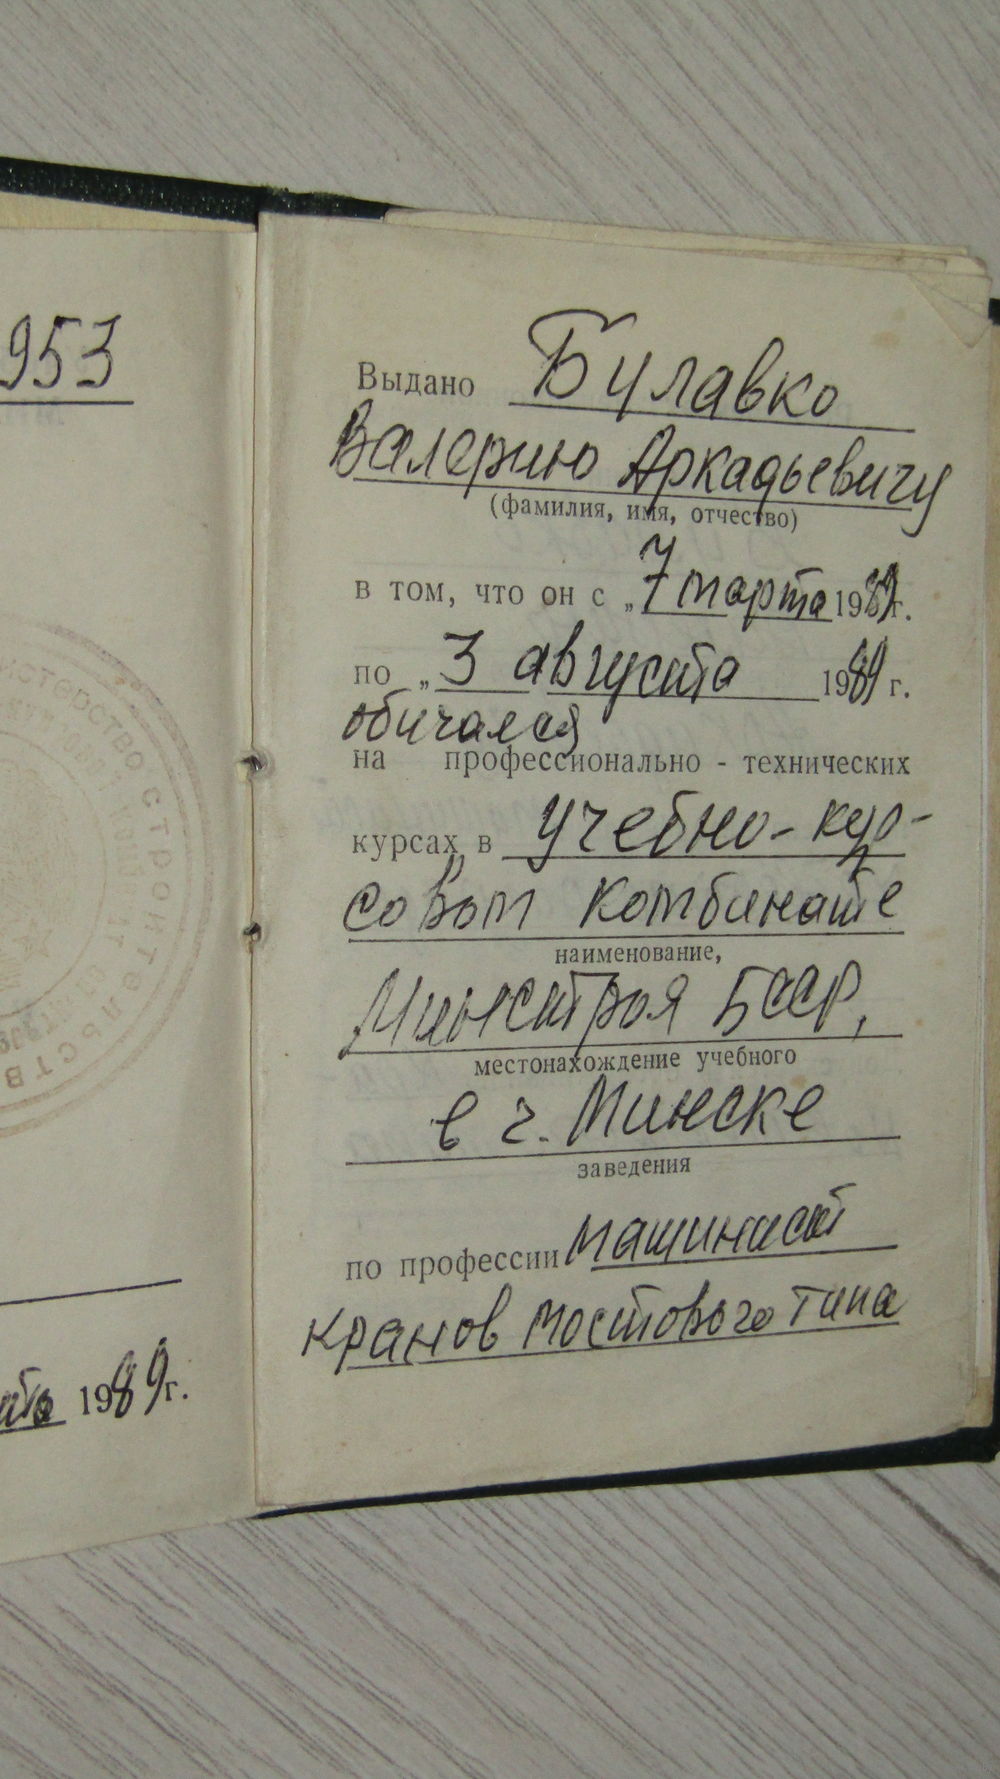 953
Выдано Булавко
Валерию Аркадьевичу
(фамилия, имя, отчество)
в том, что он с „7 марта 1989г.
по „3 августа 1989 г.
обучался
на профессионально - технических
курсах в учебно-кур-
совом комбинате
наименование,
Минстроя БССР,
местонахождение учебного
в г. Минске
заведения
по профессии машинист
кранов мостового типа
1989г.
министерство строительств